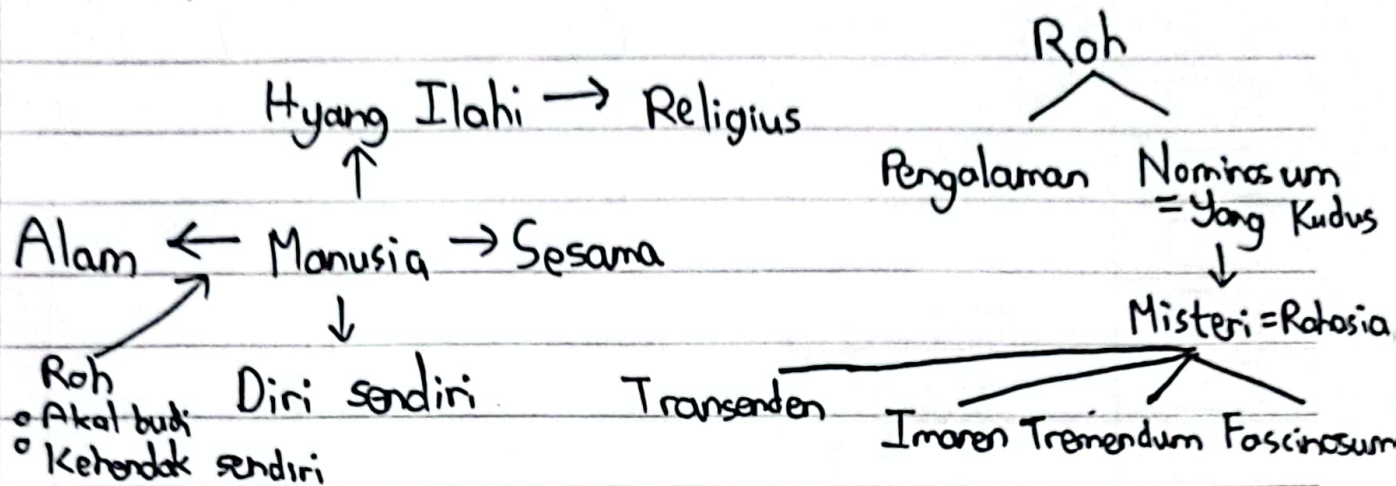 Roh
Hyang Ilahi → Religius
Pengalaman Nominosum
= Yang Kudus
Alam ← Manusia → Sesama
Misteri = Rahasia
Roh
Diri sendiri
• Akal budi
• Kehendak sendiri
Transenden
Imanen Tremendum Fascinosum